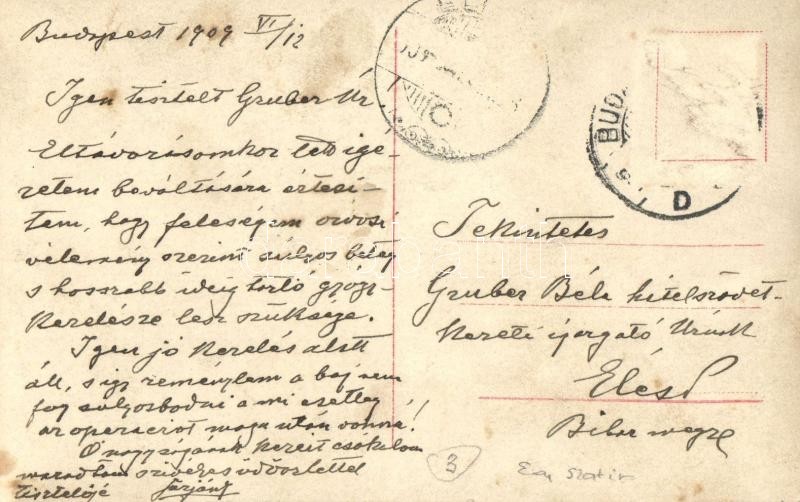 Budapest 1909 VI/12
Igen tisztelt Gruber Úr.
Eltávozásomkor tett ige-
retem beváltására értesi-
tem, hogy feleségem orvosi
vélemény szerint súlyos beteg
s hosszabb ideig tartó gyógy-
kezelésre lesz szüksége.
Igen jó kezelés alatt
áll, s igy reménylem a baj nem
fog súlyosbodni a mi esetleg
az operaciót maga után vonná!
Ő nagyságának kezeit csókolom
maradtam szives üdvözlettel
tisztelője
Tekintetes
Gruber Béla hitelszövet-
kezeti igazgató Úrnak
Élesd
Bihar megye
BUD
D
3